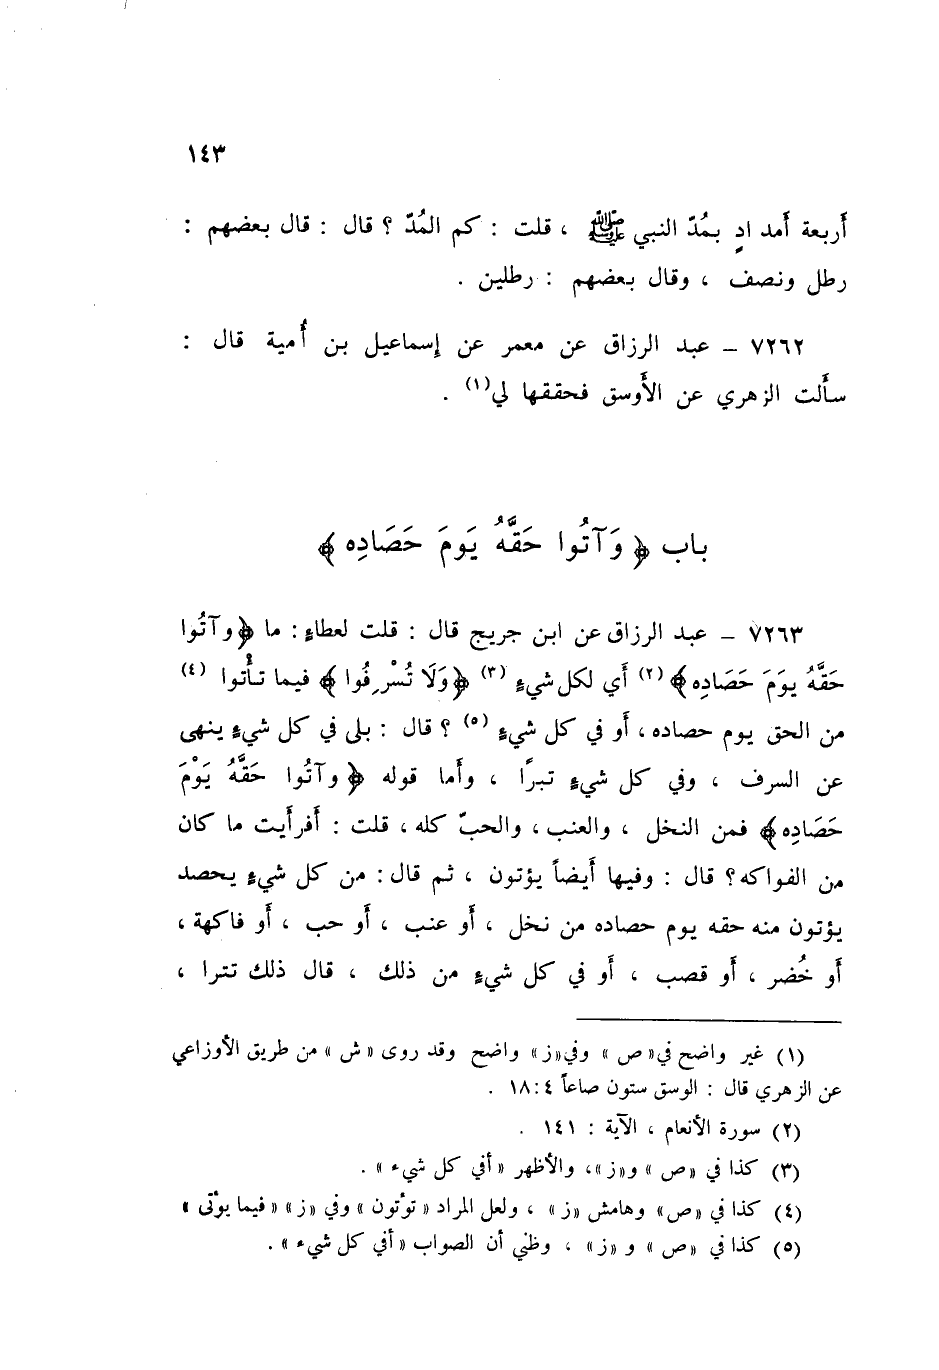 ١٤٣
أَربعة أَمداد بمُدّ النبي ﷺ ، قلت : كم المُدّ ؟ قال : قال بعضهم :
رطل ونصف ، وقال بعضهم : رطلين .
٧٢٦٢ – عبد الرزاق عن معمر عن إسماعيل بن أُمية قال :
سأَلت الزهري عن الأَوسق فحققها لي(١) .
باب ﴿ وَآتُوا حَقَّهُ يَومَ حَصَادِه ﴾
٧٢٦٣ – عبد الرزاق عن ابن جريج قال : قلت لعطاءٍ : ما ﴿وآتُوا
حَقَّهُ يومَ حَصَادِه﴾ (٢) أَي لكل شيءٍ (٣) ﴿وَلَا تُسْرِفُوا﴾ فيما تأْتوا (٤)
من الحق يوم حصاده ، أَو في كل شيءٍ (٥) ؟ قال : بلى في كل شيءٍ ينهى
عن السرف ، وفي كل شيءٍ تبرًا ، وأَما قوله ﴿ وآتُوا حَقَّهُ يَوْمَ
حَصَادِه﴾ فمن النخل ، والعنب ، والحبّ كله ، قلت : أَفرأَيت ما كان
من الفواكه؟ قال : وفيها أَيضاً يؤتون ، ثم قال : من كل شيءٍ يحصد
يؤتون منه حقه يوم حصاده من نخل ، أَو عنب ، أَو حب ، أَو فاكهة ،
أَو خُضر ، أَو قصب ، أَو في كل شيءٍ من ذلك ، قال ذلك تترا ،
(١) غير واضح في «ص» وفي «ز» واضح وقد روى «ش» من طريق الأوزاعي
عن الزهري قال : الوسق ستون صاعاً ٤ : ١٨ .
(٢) سورة الأنعام ، الآية : ١٤١ .
(٣) كذا في «ص» و«ز» ، والأظهر «أفي كل شيء» .
(٤) كذا في «ص» وهامش «ز» ، ولعل المراد «تؤتون» وفي «ز» «فيما يؤتى»
(٥) كذا في «ص» و «ز» ، وظني أن الصواب «أفي كل شيء» .